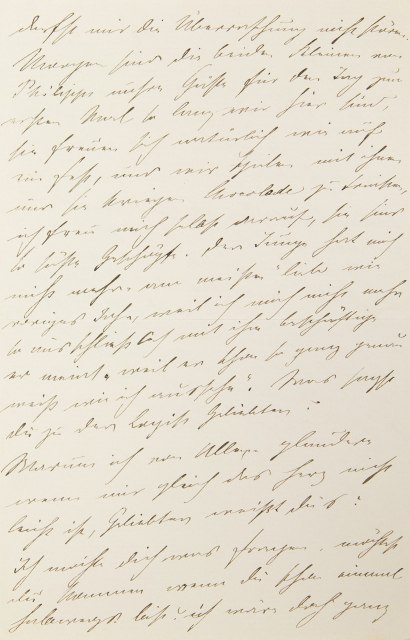 darfst mir die Überraschung nicht stören.
Morgen sind die beiden Kleinen von
Philipps unsre Gäste für den Tag zum
ersten Mal so lang wir hier sind,
sie freuen sich natürlich wie auf
ein Fest, und wir spielen mit ihnen
und sie kriegen Chocolade zu trinken,
ich freue mich selbst darauf, sie sind
so süße Geschöpfe. Der Junge hat mich
nicht mehr "am meisten" lieb wie
voriges Jahr, weil ich mich nicht mehr
so ausschließlich mit ihm beschäftige
er meint "weil er schon so ganz genau
weiß wie ich aussehe". Was sagst
du zu der Logik Geliebter?
Warum ich von Allem plaudere
wenn mir gleich das Herz nicht
leicht ist, Geliebter weißt du's?
Ich möchte dich was fragen, möchtest
du kommen wenn du schon einmal
halbwegs bist? ich wäre doch ganz